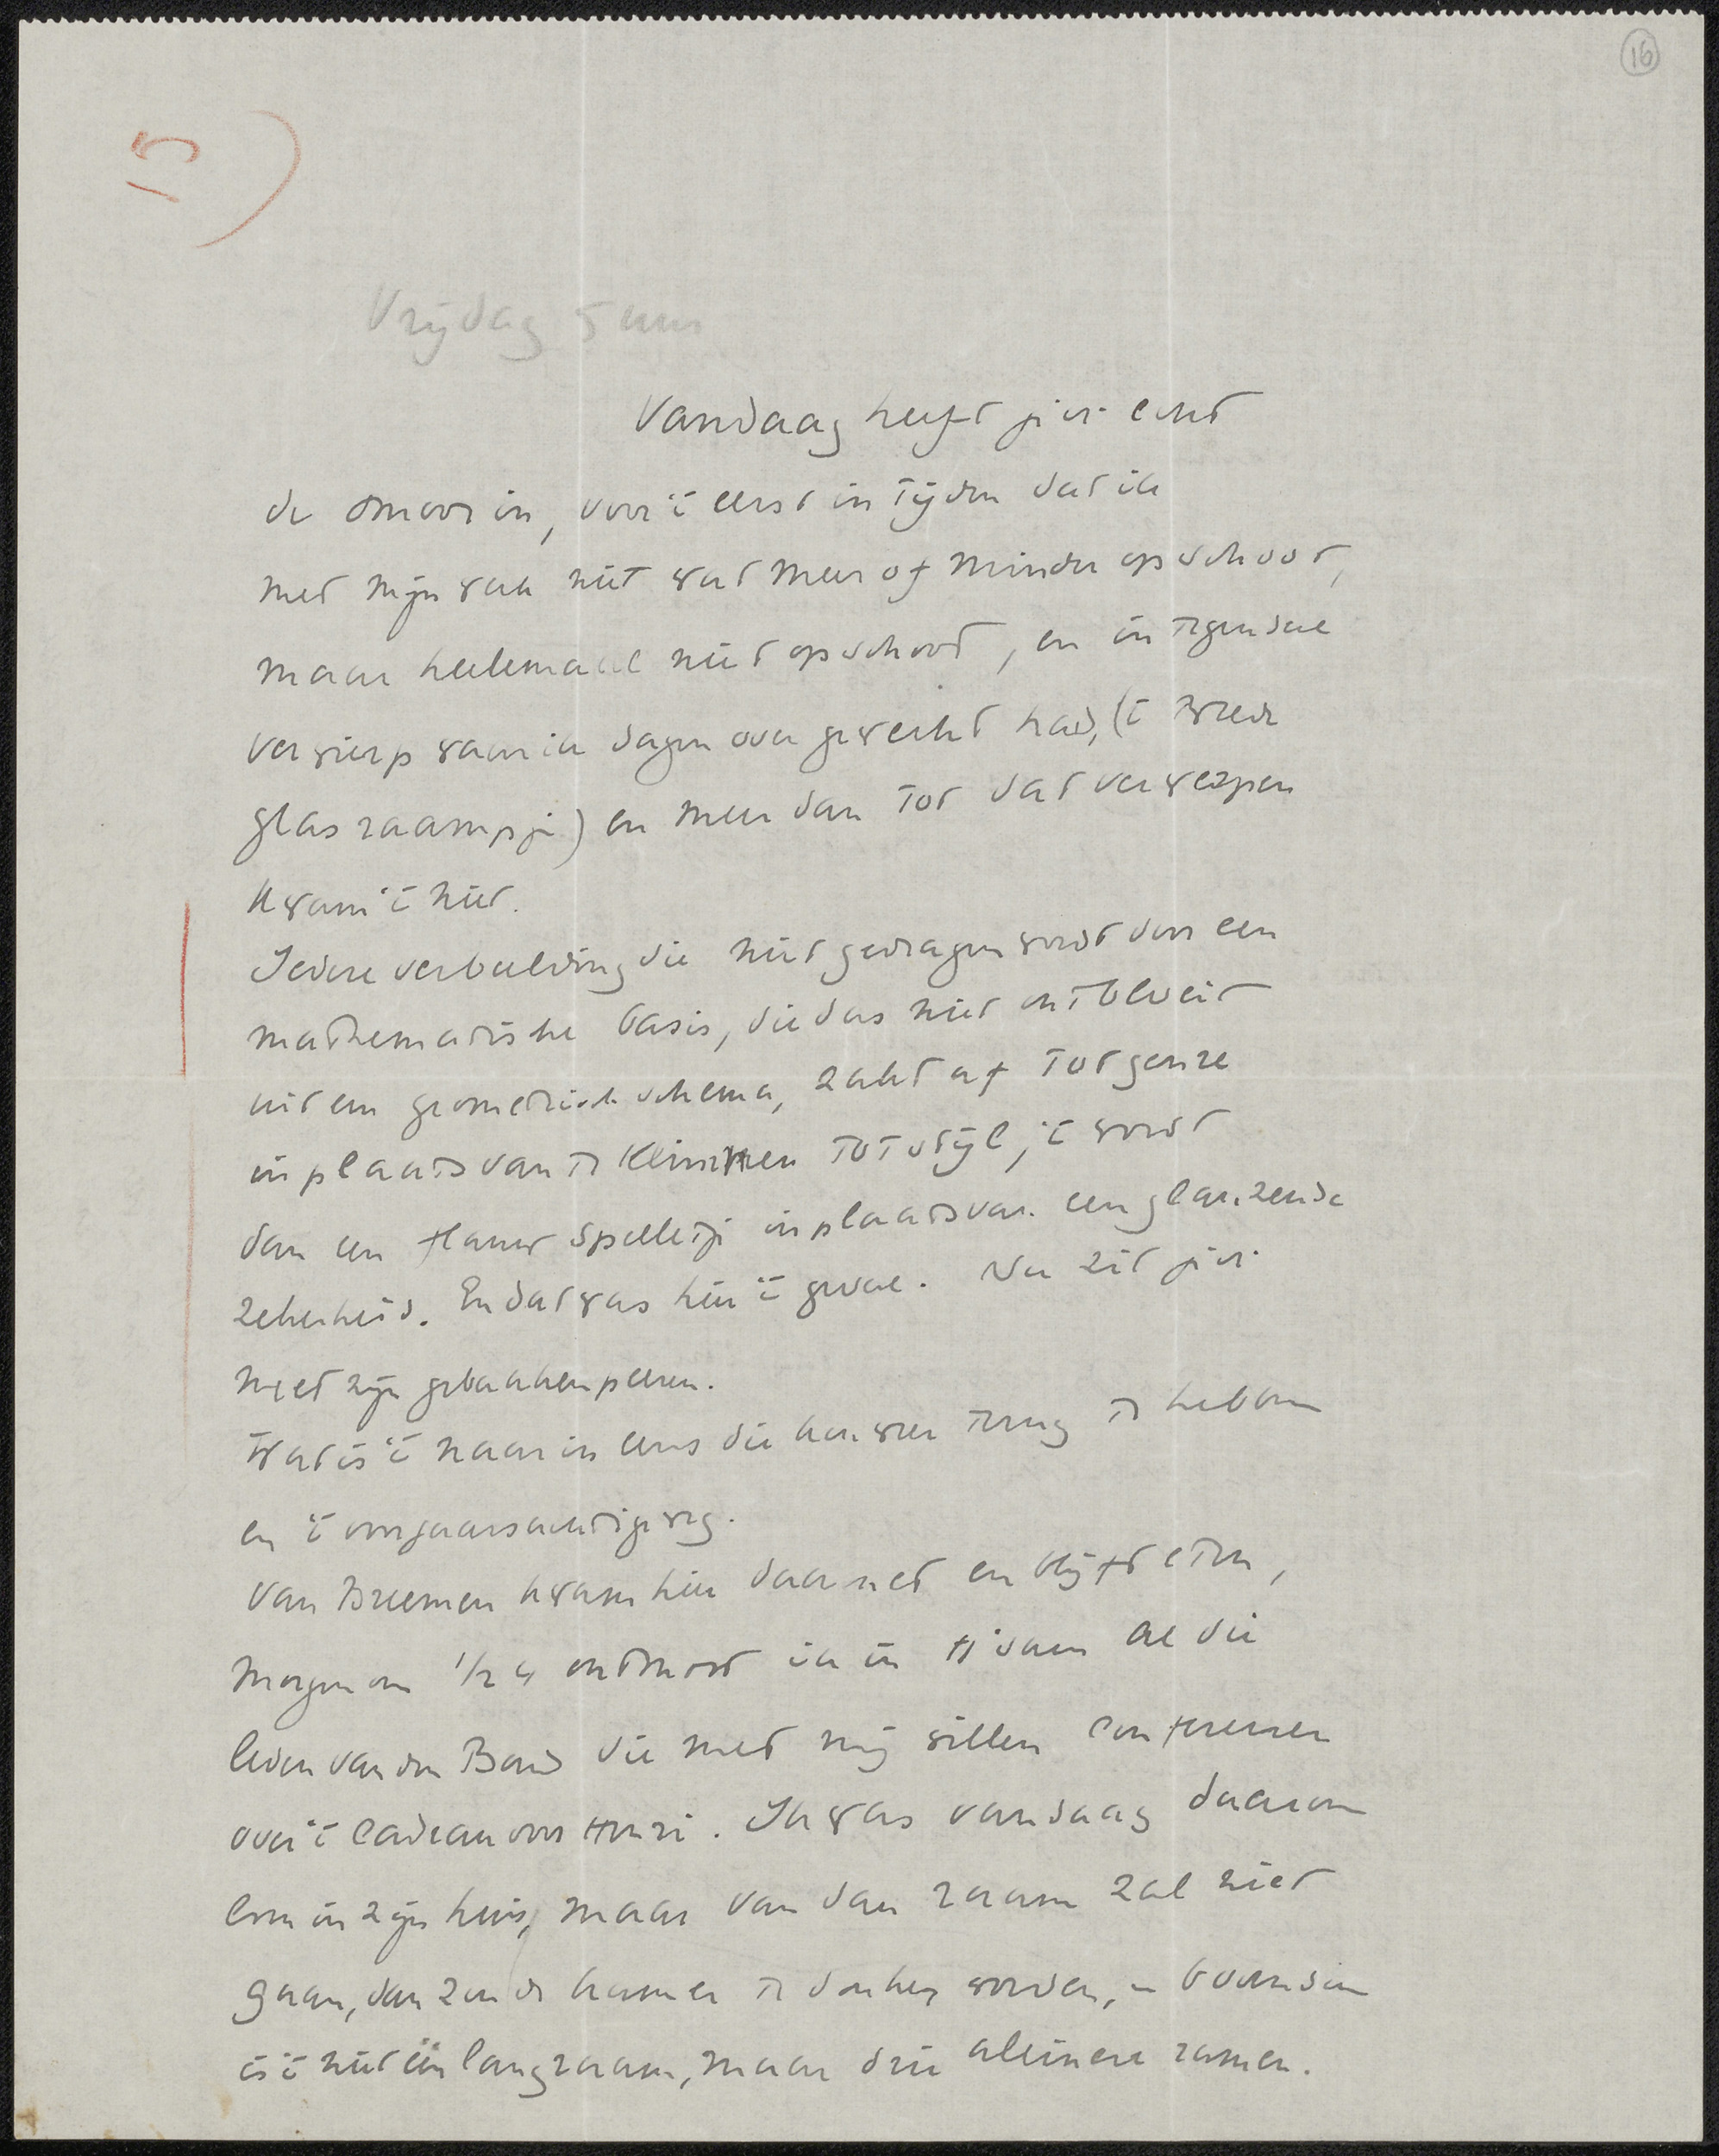 16
Vrijdag 5 uur
Vandaag heeft je vr. echt
de smoor in, voor 't eerst in tijden dat ik
met mijn vak niet wat meer of minder opschoot,
maar heelemaal niet opschoot, en in tegendeel
verwierp waar ik dagen over gewerkt had, ('t tweede
glasraampje) en meer dan tot dat verwerpen
kwam 't niet.
Iedere verbeelding die niet gedragen wordt door een
mathematische basis, die dus niet ontbloeit
uit een geometrisch schema, zakt af tot genre
in plaats van te klimmen tot stijl, 't wordt
dan een flauw spelletje in plaats van een glanzende
zekerheid. En dat was hier 't geval. Nu zit je vr.
met zijn gebakken peren.
Wat is 't naar ineens die kou weer terug te hebben
en 't voorjaarsachtige weg.
Van Breemen kwam hier daarnet en blijft eten,
morgen om 1/2 4 ontmoet ik in A'dam al die
leden van den Bond die met mij willen confereeren
over 't cadeau voor Henri. Ik was vandaag daarom
in zijn huis, maar van dan raam zal niet
gaan, dan zou de kamer te donker worden, en bovendien
is 't niet één lang raam, maar drie kleinere ramen.